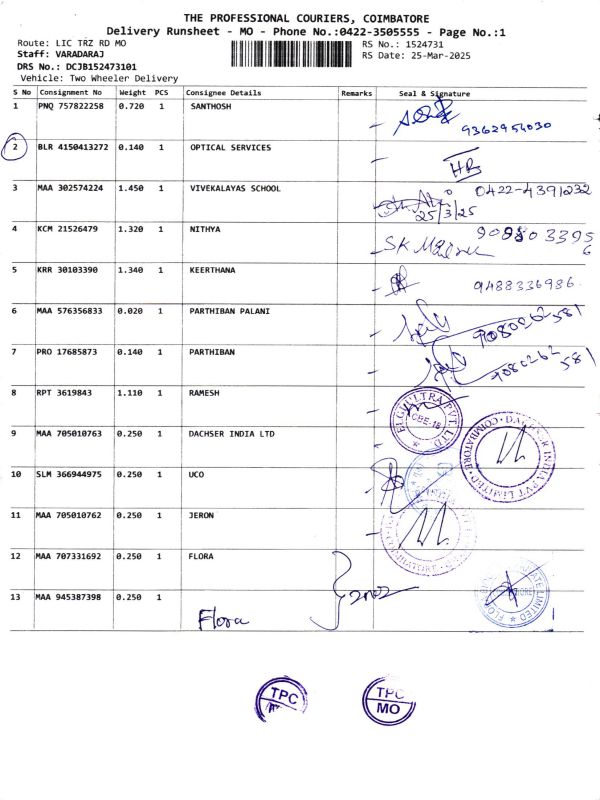 THE PROFESSIONAL COURIERS, COIMBATORE
Delivery Runsheet - MO - Phone No.:0422-3505555 - Page No.:1
Route: LIC TRZ RD MO RS No.: 1524731
Staff: VARADARAJ RS Date: 25-Mar-2025
DRS No.: DCJB152473101
Vehicle: Two Wheeler Delivery
S No Consignment No Weight PCS Consignee Details Remarks Seal & Signature
1 PNQ 757822258 0.720 1 SANTHOSH
9362954030
2 BLR 4150413272 0.140 1 OPTICAL SERVICES
3 MAA 302574224 1.450 1 VIVEKALAYAS SCHOOL 0422-4391232
25/3/25
4 KCM 21526479 1.320 1 NITHYA
5 KRR 30103390 1.340 1 KEERTHANA 9488336986
6 MAA 576356833 0.020 1 PARTHIBAN PALANI 9080262581
7 PRO 17685873 0.140 1 PARTHIBAN 9080262581
8 RPT 3619843 1.110 1 RAMESH
ELGI ULTRA PVT LTD CBE-18
9 MAA 705010763 0.250 1 DACHSER INDIA LTD
DACHSER INDIA PVT LIMITED COIMBATORE
10 SLM 366944975 0.250 1 UCO
11 MAA 705010762 0.250 1 JERON
12 MAA 707331692 0.250 1 FLORA
13 MAA 945387398 0.250 1
Flora
TPC TPC
MO